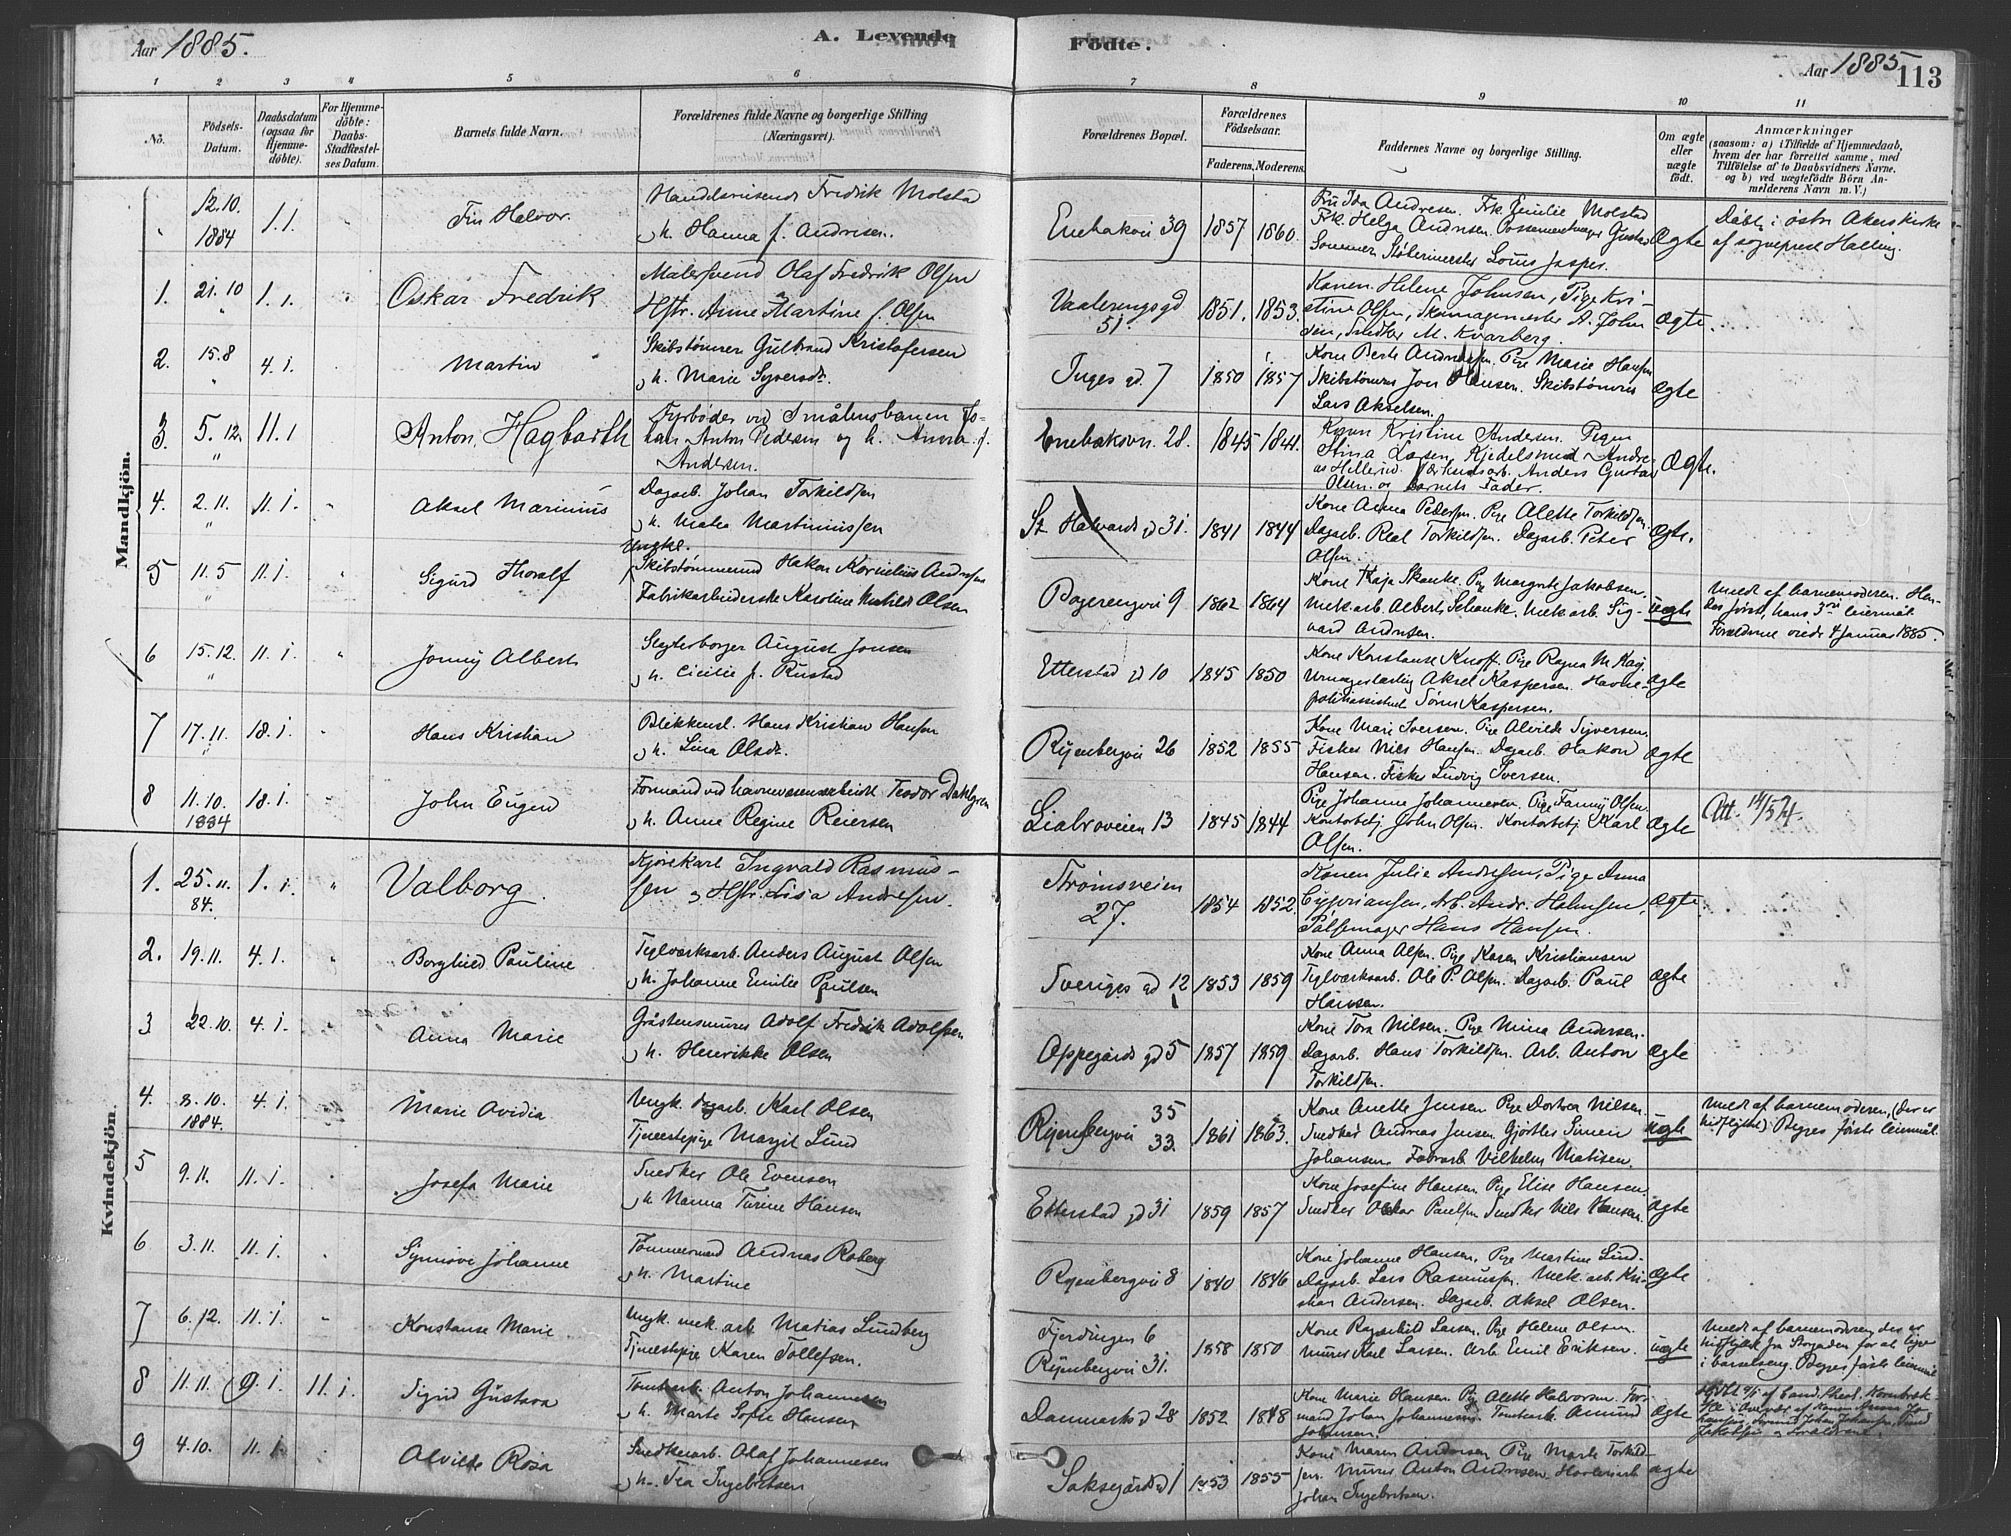 Aar 1885.
A. Levende
Fødte.
Aar 1885
113
1 2 3 4 5 6 7 8 9 10 11
No.
Fødsels-
Datum.
Daabsdatum
(ogsaa for
Hjemme-
døbte).
For Hjemme-
døbte:
Daabs-
Stadfæstel-
ses Datum.
Barnets fulde Navn.
Forældrenes fulde Navne og borgerlige Stilling
(Næringsvei).
Forældrenes Bopæl.
Forældrenes
Fødselsaar.
Faderens. Moderens.
Faddernes Navne og borgerlige Stilling.
Om ægte
eller
uægte
født.
Anmærkninger
(saasom: a) i Tilfælde af Hjemmedaab,
hvem der har forrettet samme, med
Tilføielse af to Daabsvidners Navne.
og b) ved uægtefødte Børn An-
melderens Navn m. V.)
Mandkjön.
12.10. 1884
1.1.
Fin Halvor
Handelsreisende Fredrik Molstad
og h. Hanna f. Andresen.
Enebakvei 39
1857 1860.
Fru Ida Andresen. Frk. Emilie Molstad
Frk. Helga Andresen. Possementmager Gustav
Støbermester Louis Jasper.
Ægte
Døbt i østre Akers kirke
af sogneprest Halling.
1. 21.10 1.1.
Oskar Fredrik
Malersvend Olaf Fredrik Olsen
Hstr. Anne Martine f. Olsen
Vaalerengsgd
51.
1851. 1853.
Konen Helene Johnsen, Pige Kri-
stine Olsen, Skomagermester A. John
sen, Snedker M. Kvarberg.
Ægte.
2. 15.8 4.1.
Martin
Skibstømrer Gulbrand Kristofersen
og h. Marie Syversdr.
Inges gd. 7
1850 1857
Kone Berte Andresen. Pige Marie Hansen
Skibstømrer Jon Hansen. Skibstømrer
Lars Akselsen.
Ægte
3. 5.12. 11.1
Anton Hagbarth
Fyrbøder ved Smålensbanen Jo-
han Anton Pedersen og h. Anna f.
Andersen.
Enebakvn. 28.
1845 1841.
Konen Kristine Andersen. Pigen
Anna Larsen, Kjedelsmed Andre-
as Hellerud. Anders Gustav
Olsen og Barnets Fader.
Ægte.
4. 2.11. 11.1.
Aksel Marinius
Dagarb. Johan Torkildsen
og h. Mathea Martinussen
St Halvards gd 31.
1841 1844
Kone Anna Pedersen. Pige Alette Torkildsen.
Dagarb. Real Torkildsen. Dagarb. Peter
Olsen.
Ægte.
5 11.5 11.1.
Sigurd Thoralf
Ungkl.
Skibstømmermd Hakon Kornelius Andresen
Fabrikarbeiderske Karoline Mathilde Olsen
Bogerengvei 9
1862 1864
Kone Kaja Skanke. Pige Margrete Jakobsen.
Mek arb. Albert Schanke. Mek arb. Sig-
vard Andresen.
uægte
Meldt af barnemoderen. Hen-
des første, hans 3die leiermål.
Forældrene viede 4 Januar 1885.
6 15.12. 11.1.
Jonny Albert
Slagterborger August Jonsen
og h. Cicilie f. Rustad
Etterstad gd 10
1845 1850
Kone Konstanse Knoff. Pige Ragna M. Kasp.
Urmagerlærling Aksel Kaspersen. Havne-
politiassistent Søren Kaspersen.
Ægte
7 17.11. 18.1.
Hans Kristian
Blikkensl. Hans Kristian Hansen
og h. Lina Olsdr.
Ryenbergvei 26
1852 1855
Kone Marie Iversen. Pige Alvilde Syversen.
Fisker Nils Hansen. Dagarb. Hakon
Hansen. Fisker Ludvig Iversen.
Ægte
8 11.10. 1884 18.1.
John Eugen
Formand ved havnevæsenarbeidet Teodor Dahlgren
og h. Anne Regine Reiersen
Liabroveien 13
1845 1844
Pige Johanne Johannesen. Pige Fanny Olsen.
Kontorbetj John Olsen. Kontorbetj Karl
Olsen.
Ægte
Att. 14/5 24.
Kvindekjön.
1. 25.11. 84. 1.1.
Valborg.
Kjørekarl Ingvald Rasmus-
sen og Hstr. Lisa Andresen.
Strømsveien
27.
1854 1852.
Konen Julie Andresen, Pige Anna
Cyprianssen, Arb. Andr. Holmsen,
Pølsemager Hans Hansen.
Ægte
2. 19.11. 4.1.
Borghild Pauline
Teglværksarb. Anders August Olsen
og h. Johanne Emilie Paulsen
Sveriges gd 12
1853 1859
Kone Anna Olsen. Pige Karen Kristiansen
Teglværksarb. Ole P. Olsen. Dagarb. Paul
Hansen.
Ægte
3 22.10. 4.1.
Anna Marie
Gråstensmurer Adolf Fredrik Adolfsen
og h. Henrikke Olsen
Oppegårds gd 5
1857 1859
Kone Tora Nilsen. Pige Mina Andersen.
Dagarb. Hans Torkildsen. Arb. Anton
Torkildsen.
Ægte
4. 8.10. 1884. 4.1.
Marie Ovidia
Ungk. dagarb. Karl Olsen
Tjenestepige Margit Lund
Ryenbergvei 35
33.
1861 1863.
Kone Anette Jensen Pige Dortea Nilsen.
Snedker Andreas Jensen. Gjørtler Simen
Johansen. Fabrarb Vilhelm Matisen.
uægte
Meldt af barnemoderen, (der er
hidflyttet). Begges første leiermål.
5 9.11. 11.1.
Josefa Marie
Snedker Ole Evensen
og h. Nanna Turine Hansen
Etterstad gd 31
1859 1857
Kone Josefine Hansen. Pige Elise Hansen.
Snedker Oskar Paulsen Snedker Nils Hansen.
Ægte
6 3.11. 11.1.
Synnøve Johanne
Tømmermand Andreas Roberg
og h. Martine
Ryenbergvei 8
1840 1846
Kone Johanne Hansen. Pige Martine Lund-
Dagarb. Lars Rasmussen. Mek. arb. Kri-
stian Andersen. Dagarb. Aksel Olsen.
Ægte
7 6.12. 11.1.
Konstanse Marie
Ungk. mek. arb. Matias Lundberg
Tjenestepige Karen Tollefsen.
Fjerdingen 6
Ryenbergvei 31.
1858 1850
Kone Ragnhild Larsen. Pige Helene Olsen.
Murer Karl Larsen. Arb. Emil Eriksen.
uægte
Meldt af barnemoderen, der er
hidflyttet fra Storgaden for at ligge
i barselseng. Begges første leiermål
8 11.11. 9.1. 11.1.
Sigrid Gustava
Tomtearb. Anton Johannesen
og h. Marte Sofie Hansen
Danmarks gd 28
1852 1848
Kone Marie Hansen. Pige Alette Halvorsen. For-
mand Johan Johannesen. Tomtearb. Amund
Johansen.
Ægte
9 4.10. 11.1.
Alvilde Rosa
Snedkerarb. Olaf Johannesen
og h. Tea Ingebretsen
Saksegårdsgd 1
1853 1855
Kone Maren Andersen Pige Marte Torkild-
sen. Murer Anton Andresen.
Johan Ingebretsen.
Ægte